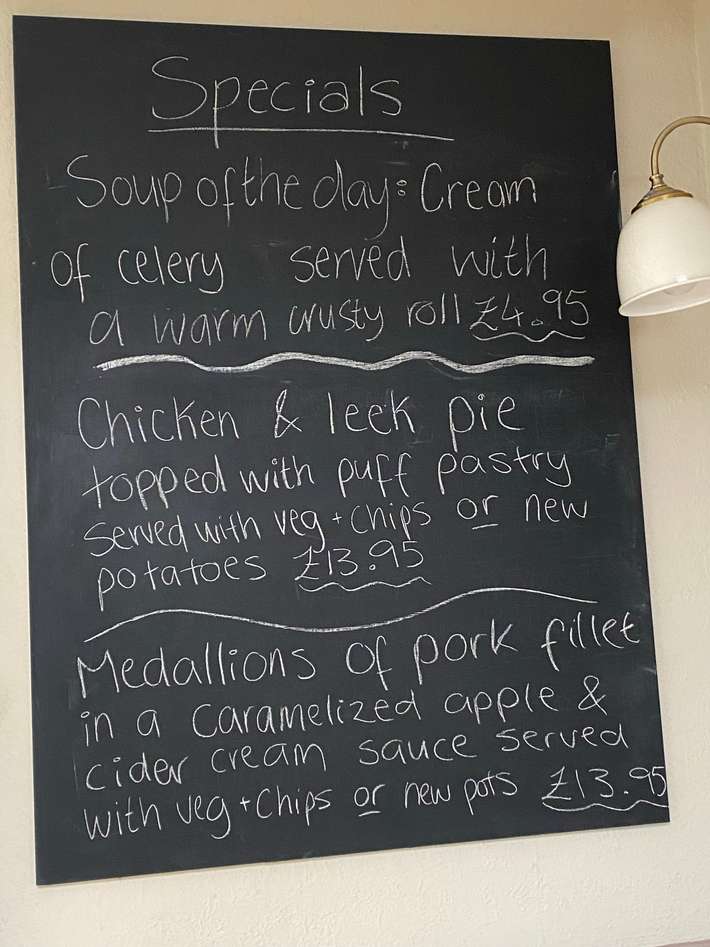 Specials
Soup of the day: Cream
of celery served with
a warm crusty roll £4.95
Chicken & leek pie
topped with puff pastry
served with veg + chips or new
potatoes £13.95
Medallions of pork fillet
in a caramelized apple &
cider cream sauce served
with veg + chips or new pots £13.95